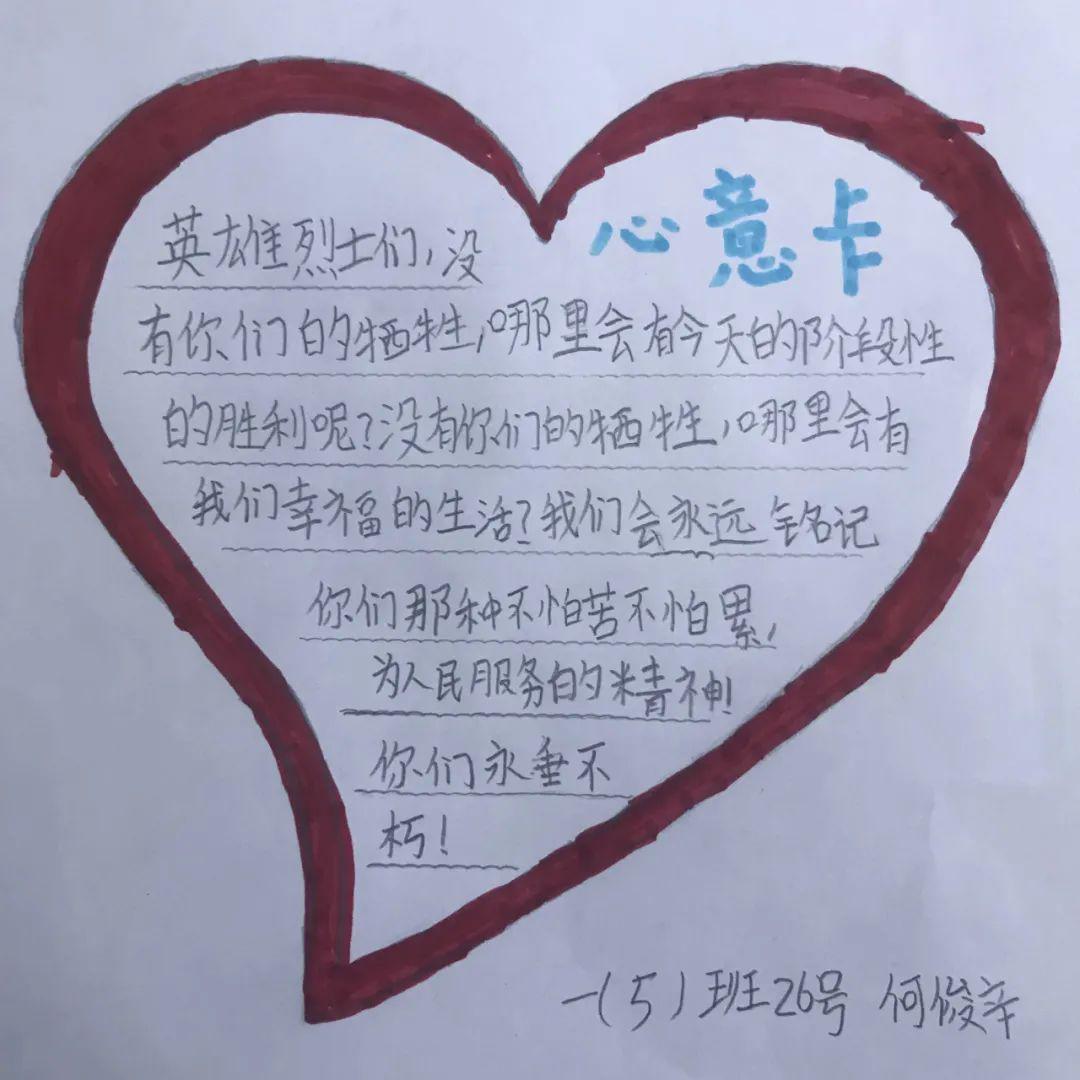 心意卡
英雄烈士们,没
有你们的牺牲,哪里会有今天的阶段性
的胜利呢?没有你们的牺牲,哪里会有
我们幸福的生活?我们会永远铭记
你们那种不怕苦不怕累,
为人民服务的精神!
你们永垂不
朽!
一(5)班26号 何俊辛